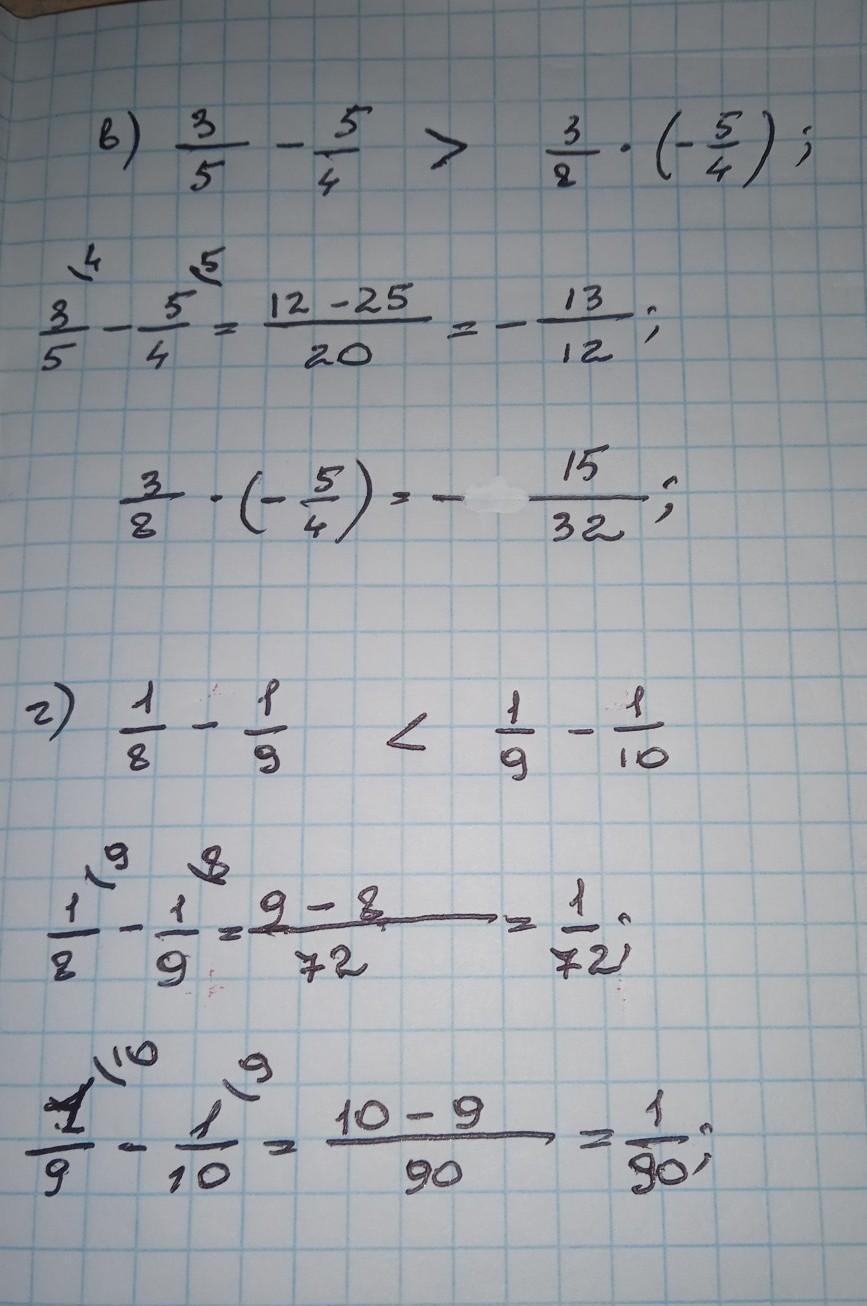 в) 3/5 - 5/4 > 3/8 · (- 5/4);
3/5 \4 - 5/4 \5 = 12 - 25/20 = - 13/12;
3/8 · (- 5/4) = - 15/32;
г) 1/8 - 1/9 < 1/9 - 1/10
1/8 \9 - 1/9 \8 = 9 - 8/72 = 1/72;
1/9 \10 - 1/10 \9 = 10 - 9/90 = 1/90;